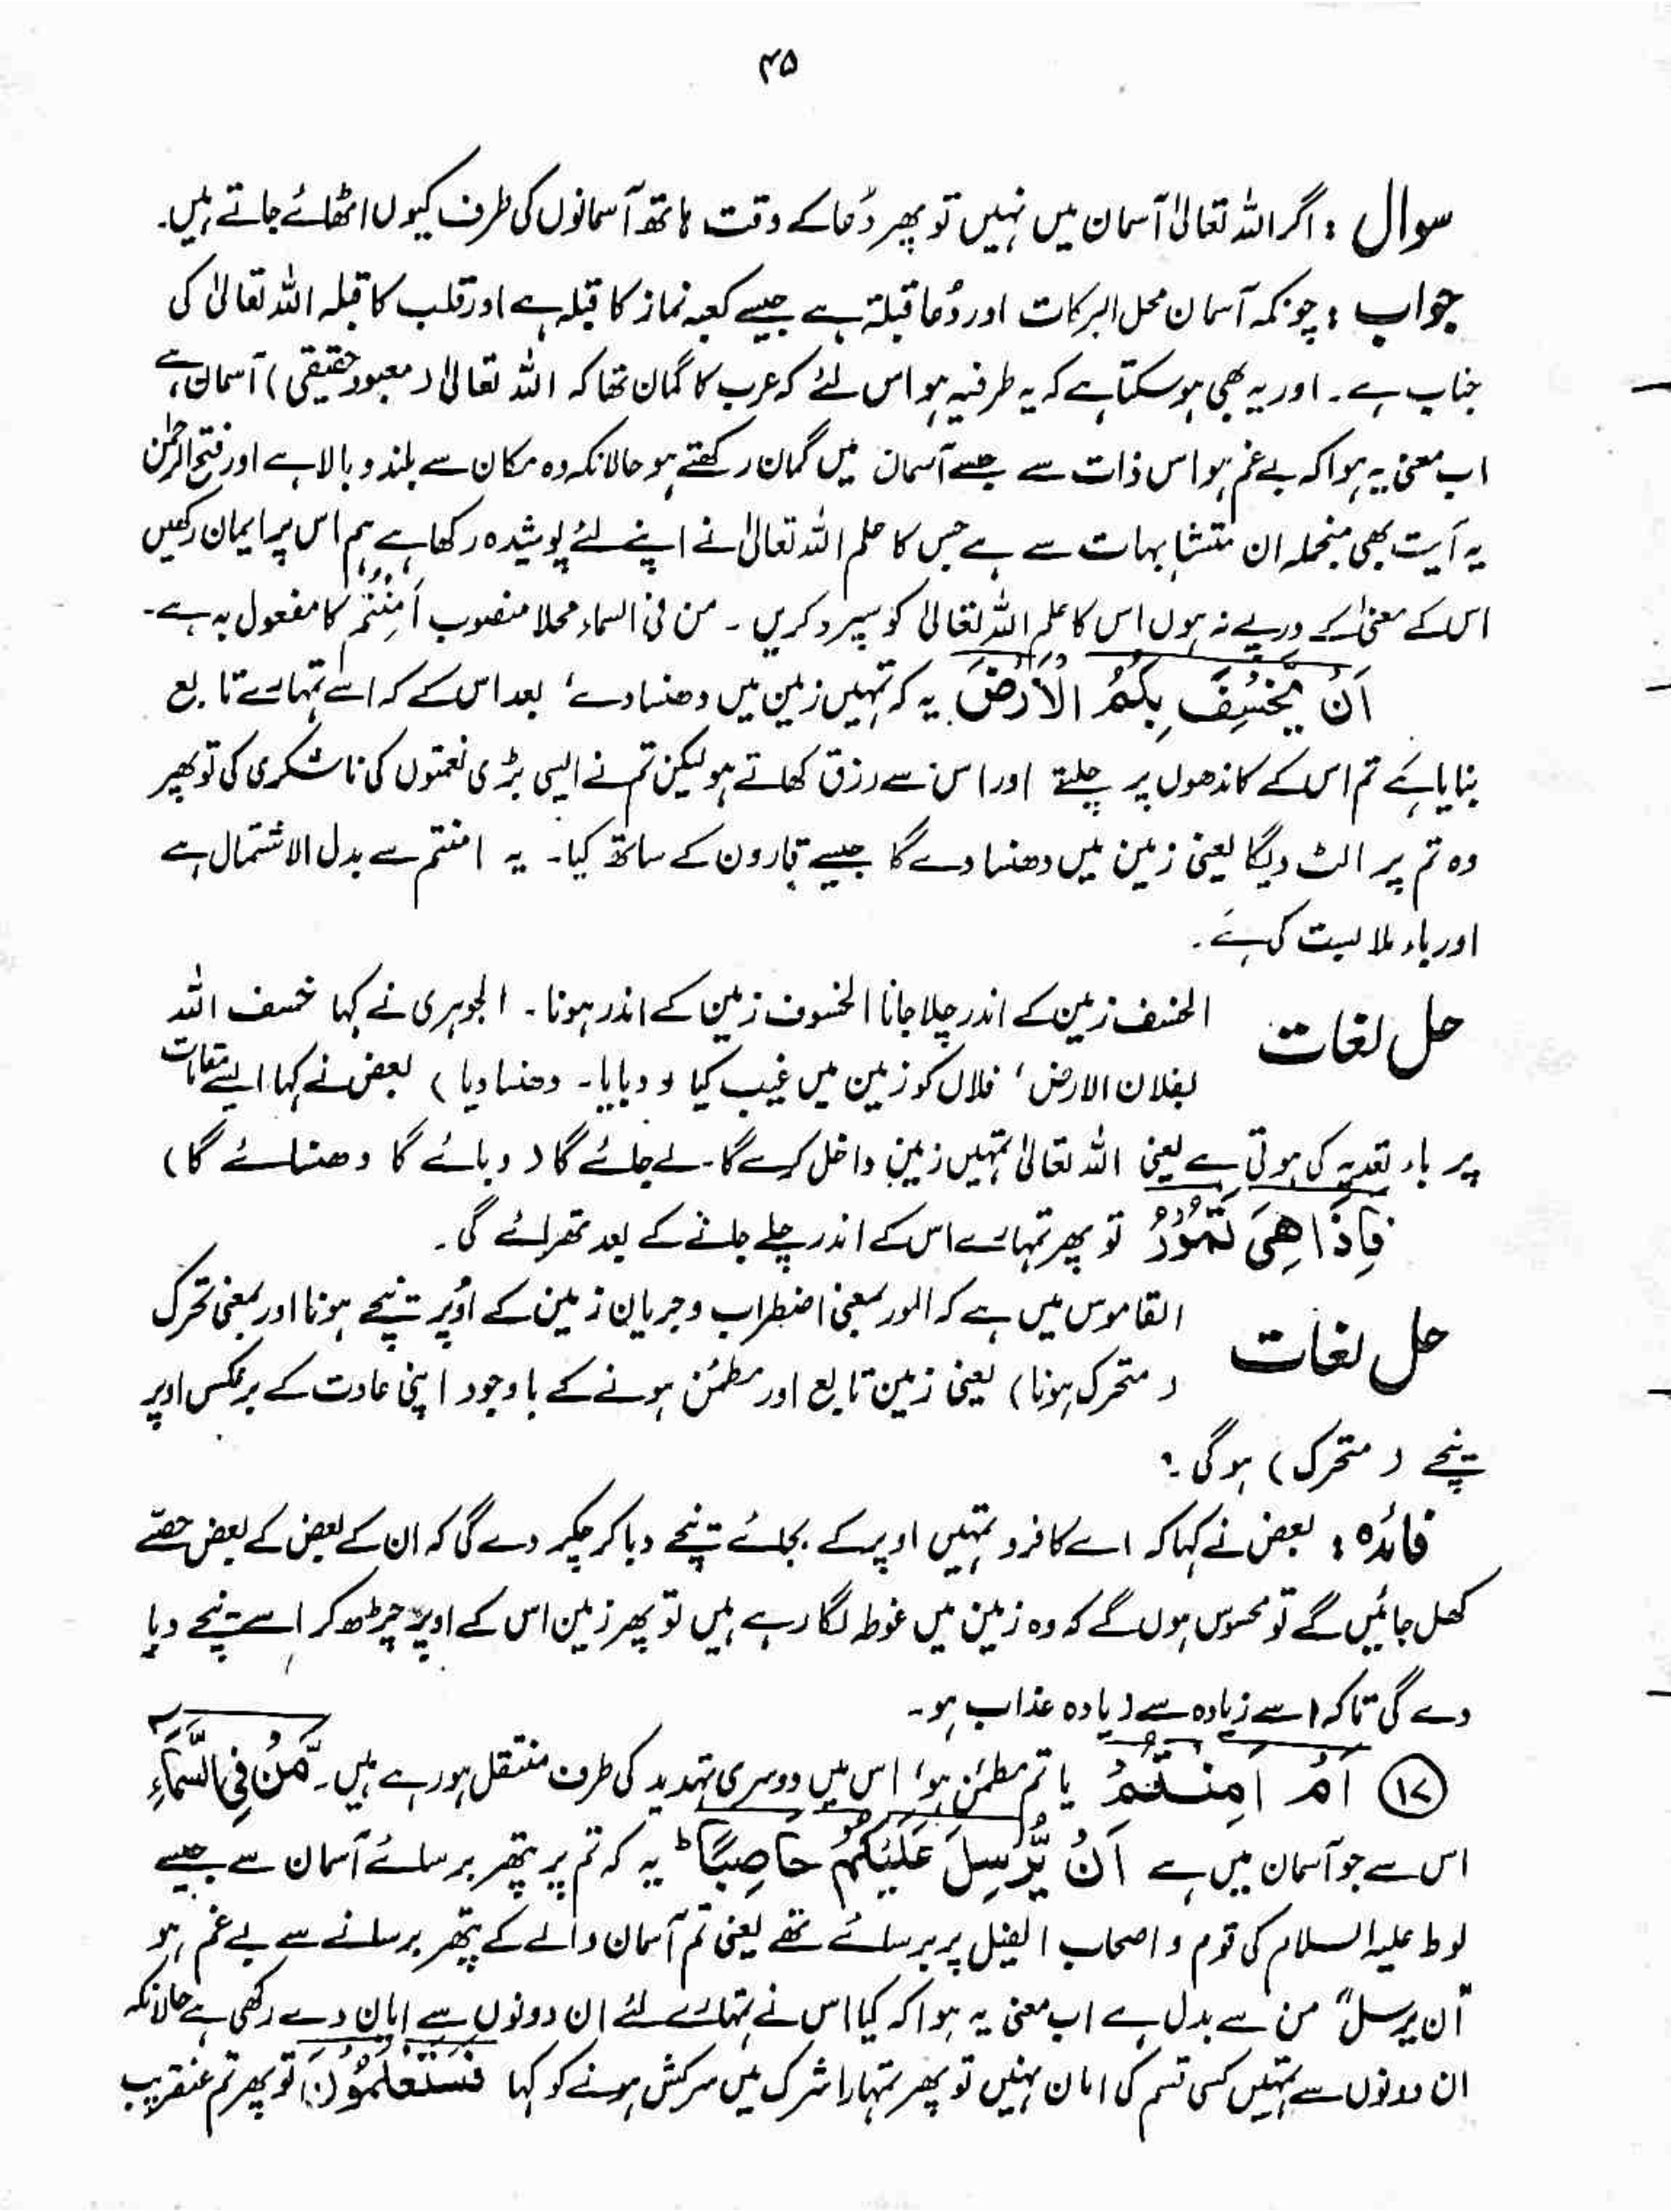 ۴۵
سوال : اگر اللہ تعالیٰ آسمان میں نہیں تو پھر دُعا کے وقت ہاتھ آسمانوں کی طرف کیوں اٹھائے جاتے ہیں۔
جواب : چونکہ آسمان محل البرکات اور دُعا قبلۃ ہے جیسے کعبہ نماز کا قبلہ ہے اور قلب کا قبلہ اللہ تعالیٰ کی
جناب ہے ۔ اور یہ بھی ہوسکتا ہے کہ یہ ظرفیہ ہو اس لئے کہ عرب کا گمان تھا کہ اللہ تعالیٰ (معبود حقیقی) آسمان ہے
اب معنیٰ یہ ہوا کہ بے غم ہو اس ذات سے جسے آسمان میں گمان رکھتے ہو حالانکہ وہ مکان سے بلند و بالا ہے اور فتح الرحمٰن
یہ آیت بھی منجملہ ان متشابہات سے ہے جس کا علم اللہ تعالیٰ نے اپنے لئے پوشیدہ رکھا ہے ہم اس پر ایمان رکھیں
اس کے معنیٰ کے درپے نہ ہوں اس کا علم اللہ تعالیٰ کو سپرد کریں ۔ من فی السماء محلا منصوب اَمِنْتُمْ کا مفعول بہ ہے۔
اَنْ يَّخْسِفَ بِكُمُ الْاَرْضَ یہ کہ تمہیں زمین میں دھنسا دے ، بعد اس کے کہ اسے تمہارے تابع
بنایا ہے تم اس کے کاندھوں پر چلتے اور اس سے رزق کھاتے ہو لیکن تم نے ایسی بڑی نعمتوں کی ناشکری کی تو پھر
وہ تم پر الٹ دیگا یعنی زمین میں دھنسا دے گا جیسے قارون کے ساتھ کیا۔ یہ امنتم سے بدل الاشتمال ہے
اور باء ملابست کی ہے ۔
حل لغات الخسف زمین کے اندر چلا جانا الخسوف زمین کے اندر ہونا ۔ الجوہری نے کہا خسف اللہ
بفلان الارض ، فلاں کو زمین میں غیب کیا (دبایا۔ دھنسا دیا) بعض نے کہا ایسے مقامات
پر باء تعدیہ کی ہوتی ہے یعنی اللہ تعالیٰ تمہیں زمین داخل کرے گا۔ لے جائے گا (دبائے گا دھنسائے گا)
فَاِذَا هِيَ تَمُوْرُ تو پھر تمہارے اس کے اندر چلے جانے کے بعد تھرائے گی ۔
حل لغات القاموس میں ہے کہ المور بمعنیٰ اضطراب و جریان زمین کے اوُپر نیچے ہونا اور بمعنیٰ تحرک
(متحرک ہونا) یعنی زمین تابع اور مطمئن ہونے کے باوجود اپنی عادت کے برعکس اوپر
نیچے (متحرک) ہوگی ۔
فائدہ : بعض نے کہا کہ اے کافرو تمہیں اوپر کے بجائے نیچے دبا کر چکر دے گی کہ ان کے بعض کے بعض حصّے
کھل جائیں گے تو محسوس ہوں گے کہ وہ زمین میں غوطہ لگا رہے ہیں تو پھر زمین اس کے اوپر چڑھ کر اسے نیچے دبا
دے گی تاکہ اسے زیادہ سے زیادہ عذاب ہو۔
۱۷ اَمْ اَمِنْتُمْ یا تم مطمئن ہو ، اس میں دوسری تہدید کی طرف منتقل ہو رہے ہیں ۔ مَّنْ فِي السَّمَآءِ
اس سے جو آسمان میں ہے اَنْ يُّرْسِلَ عَلَيْكُمْ حَاصِبًا ط یہ کہ تم پر پتھر برسائے آسمان سے جیسے
لوط علیہ السلام کی قوم و اصحاب الفیل پر برسائے تھے یعنی تم آسمان والے کے پتھر برسانے سے بے غم ہو
"ان یرسل" من سے بدل ہے اب معنی یہ ہوا کہ کیا اس نے تمہارے لئے ان دونوں سے امان دے رکھی ہے حالانکہ
ان دونوں سے تمہیں کسی قسم کی امان نہیں تو پھر تمہارا شرک میں سرکش ہونے کو کہا فَسَتَعْلَمُوْنَ تو پھر تم عنقریب